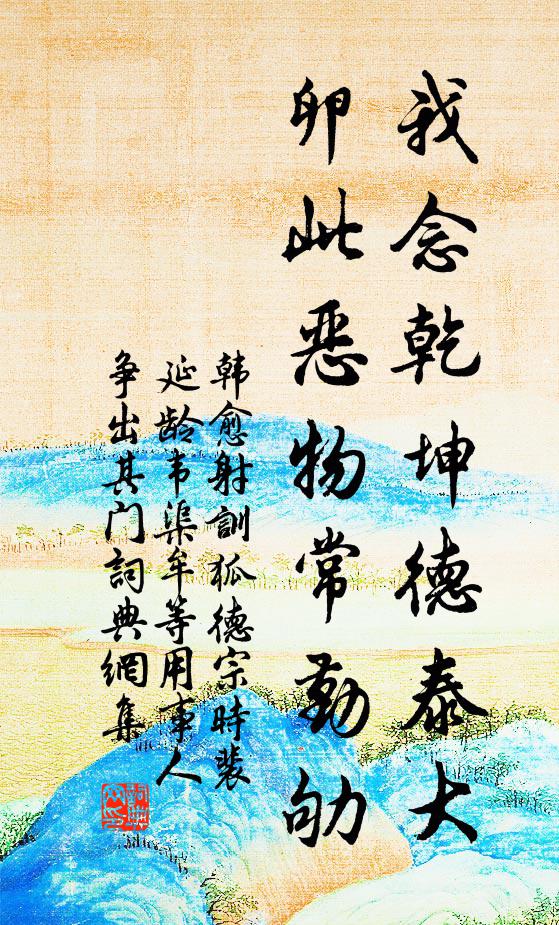 我念乾坤德泰大
卵此恶物常勤劬
韩愈射訓狐德宗時裴
延龄韦渠牟等用事人
争出其门詞典網集